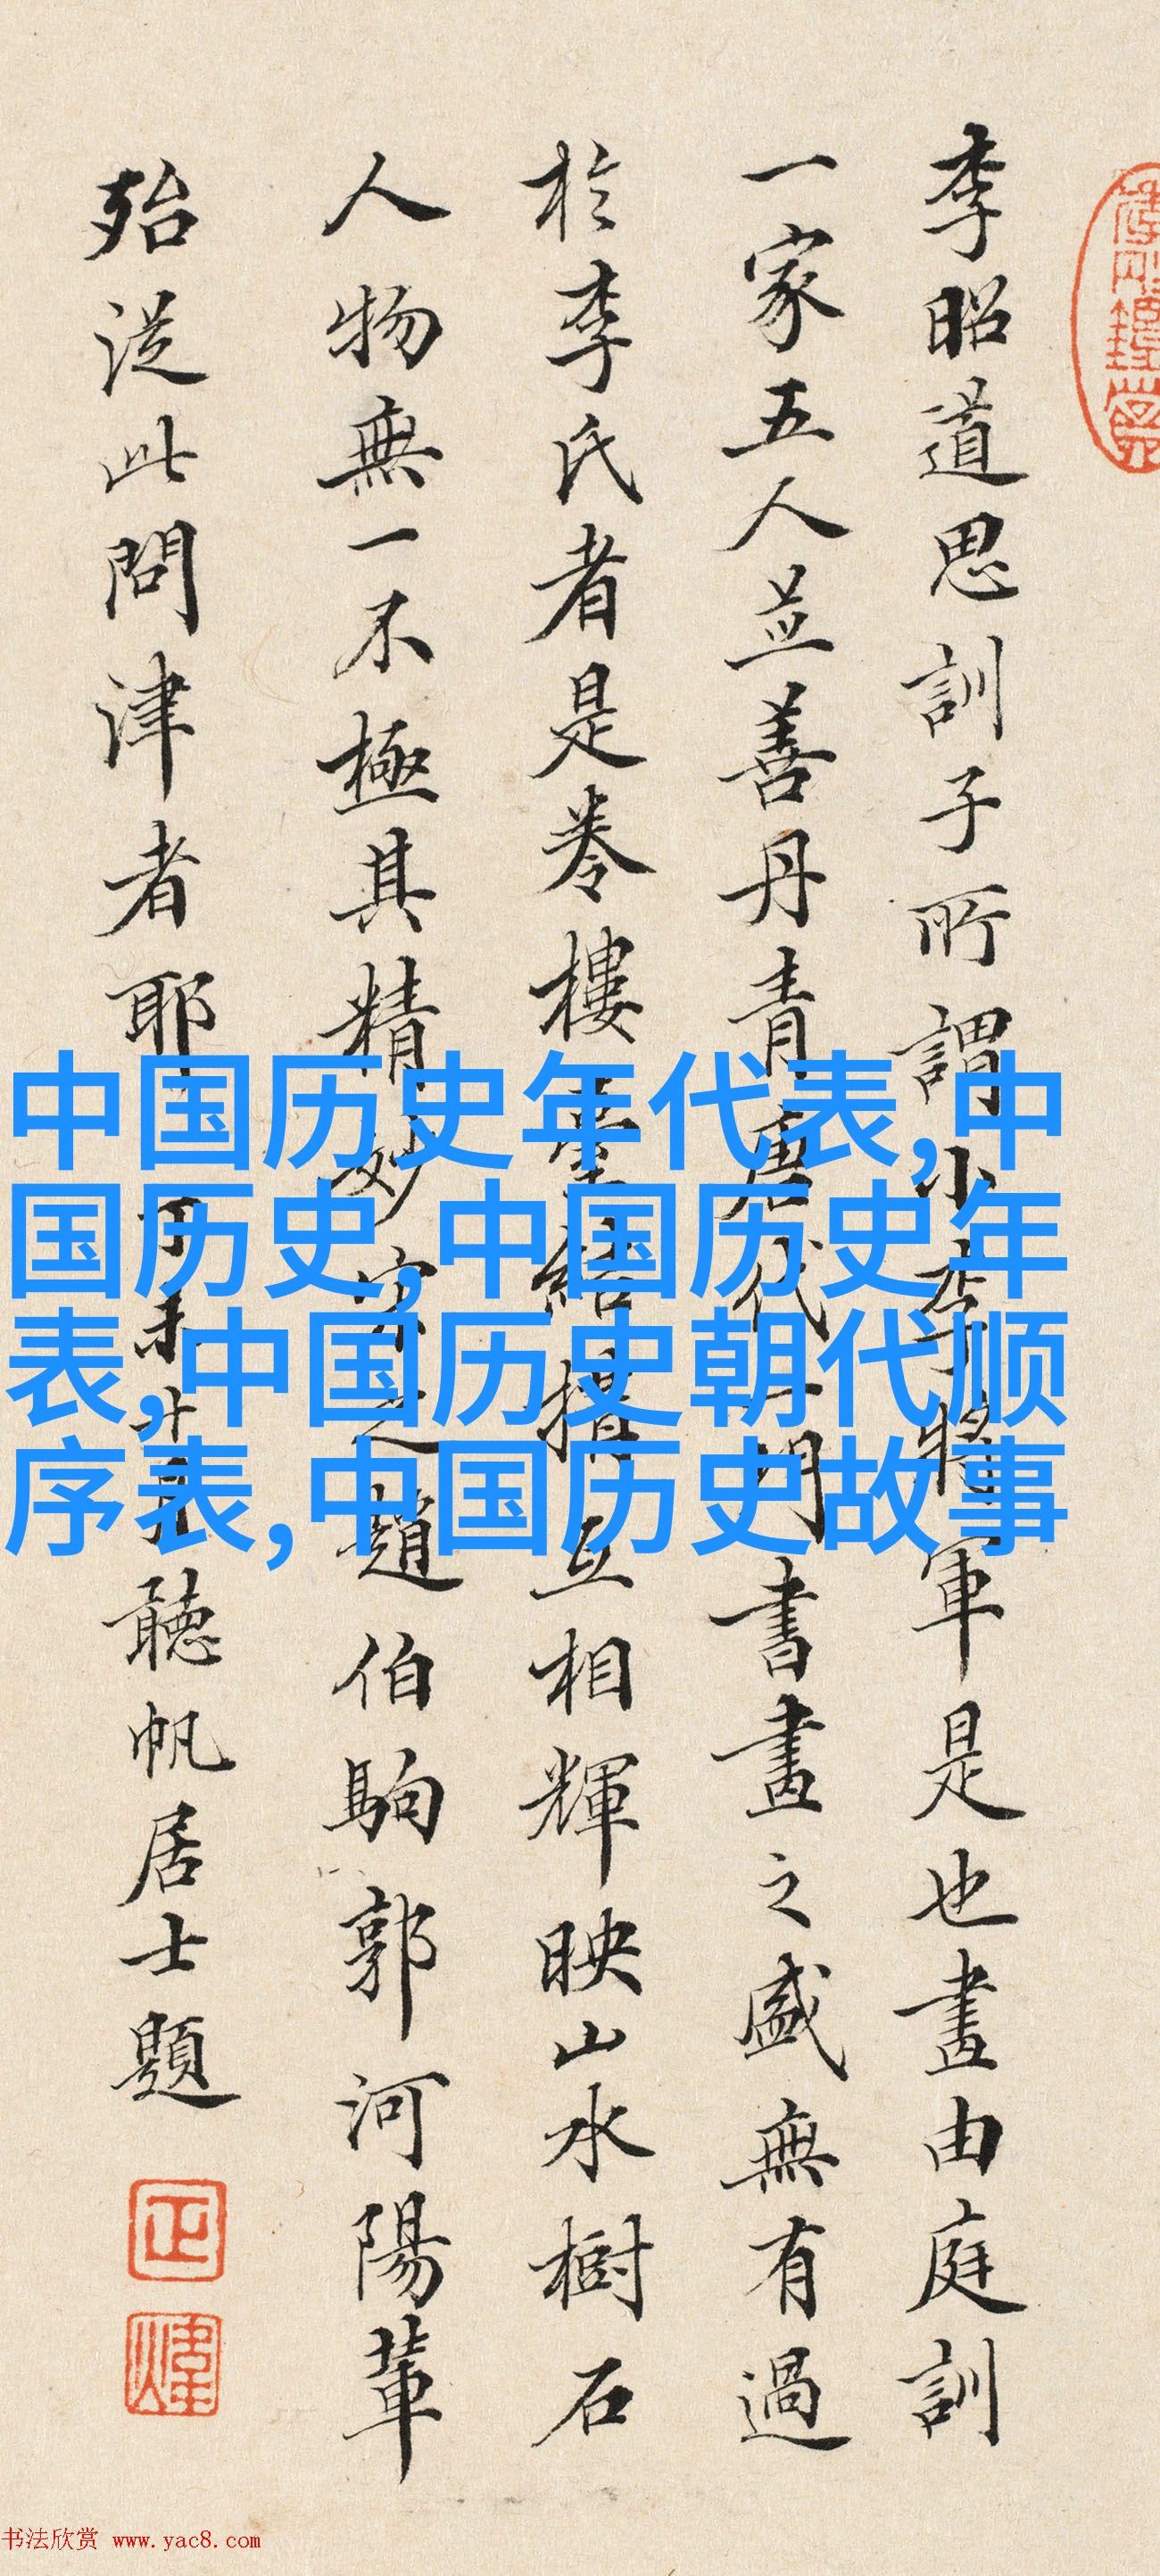 李昭道思訓子所謂小李將軍是也畫由庭訓
一家五人並善丹青唐代一門書畫之盛無有過
於李氏者是卷樓臺結構互相輝映山水樹石
人物無一不極其精妙宋之趙伯駒郭河陽輩
殆從此問津者耶
聽帆居士題
正
煒
中国历史年代表,中
国历史,中国历史年
表,中国历史朝代顺
序表,中国历史故事
书法欣赏 www.yac8.com